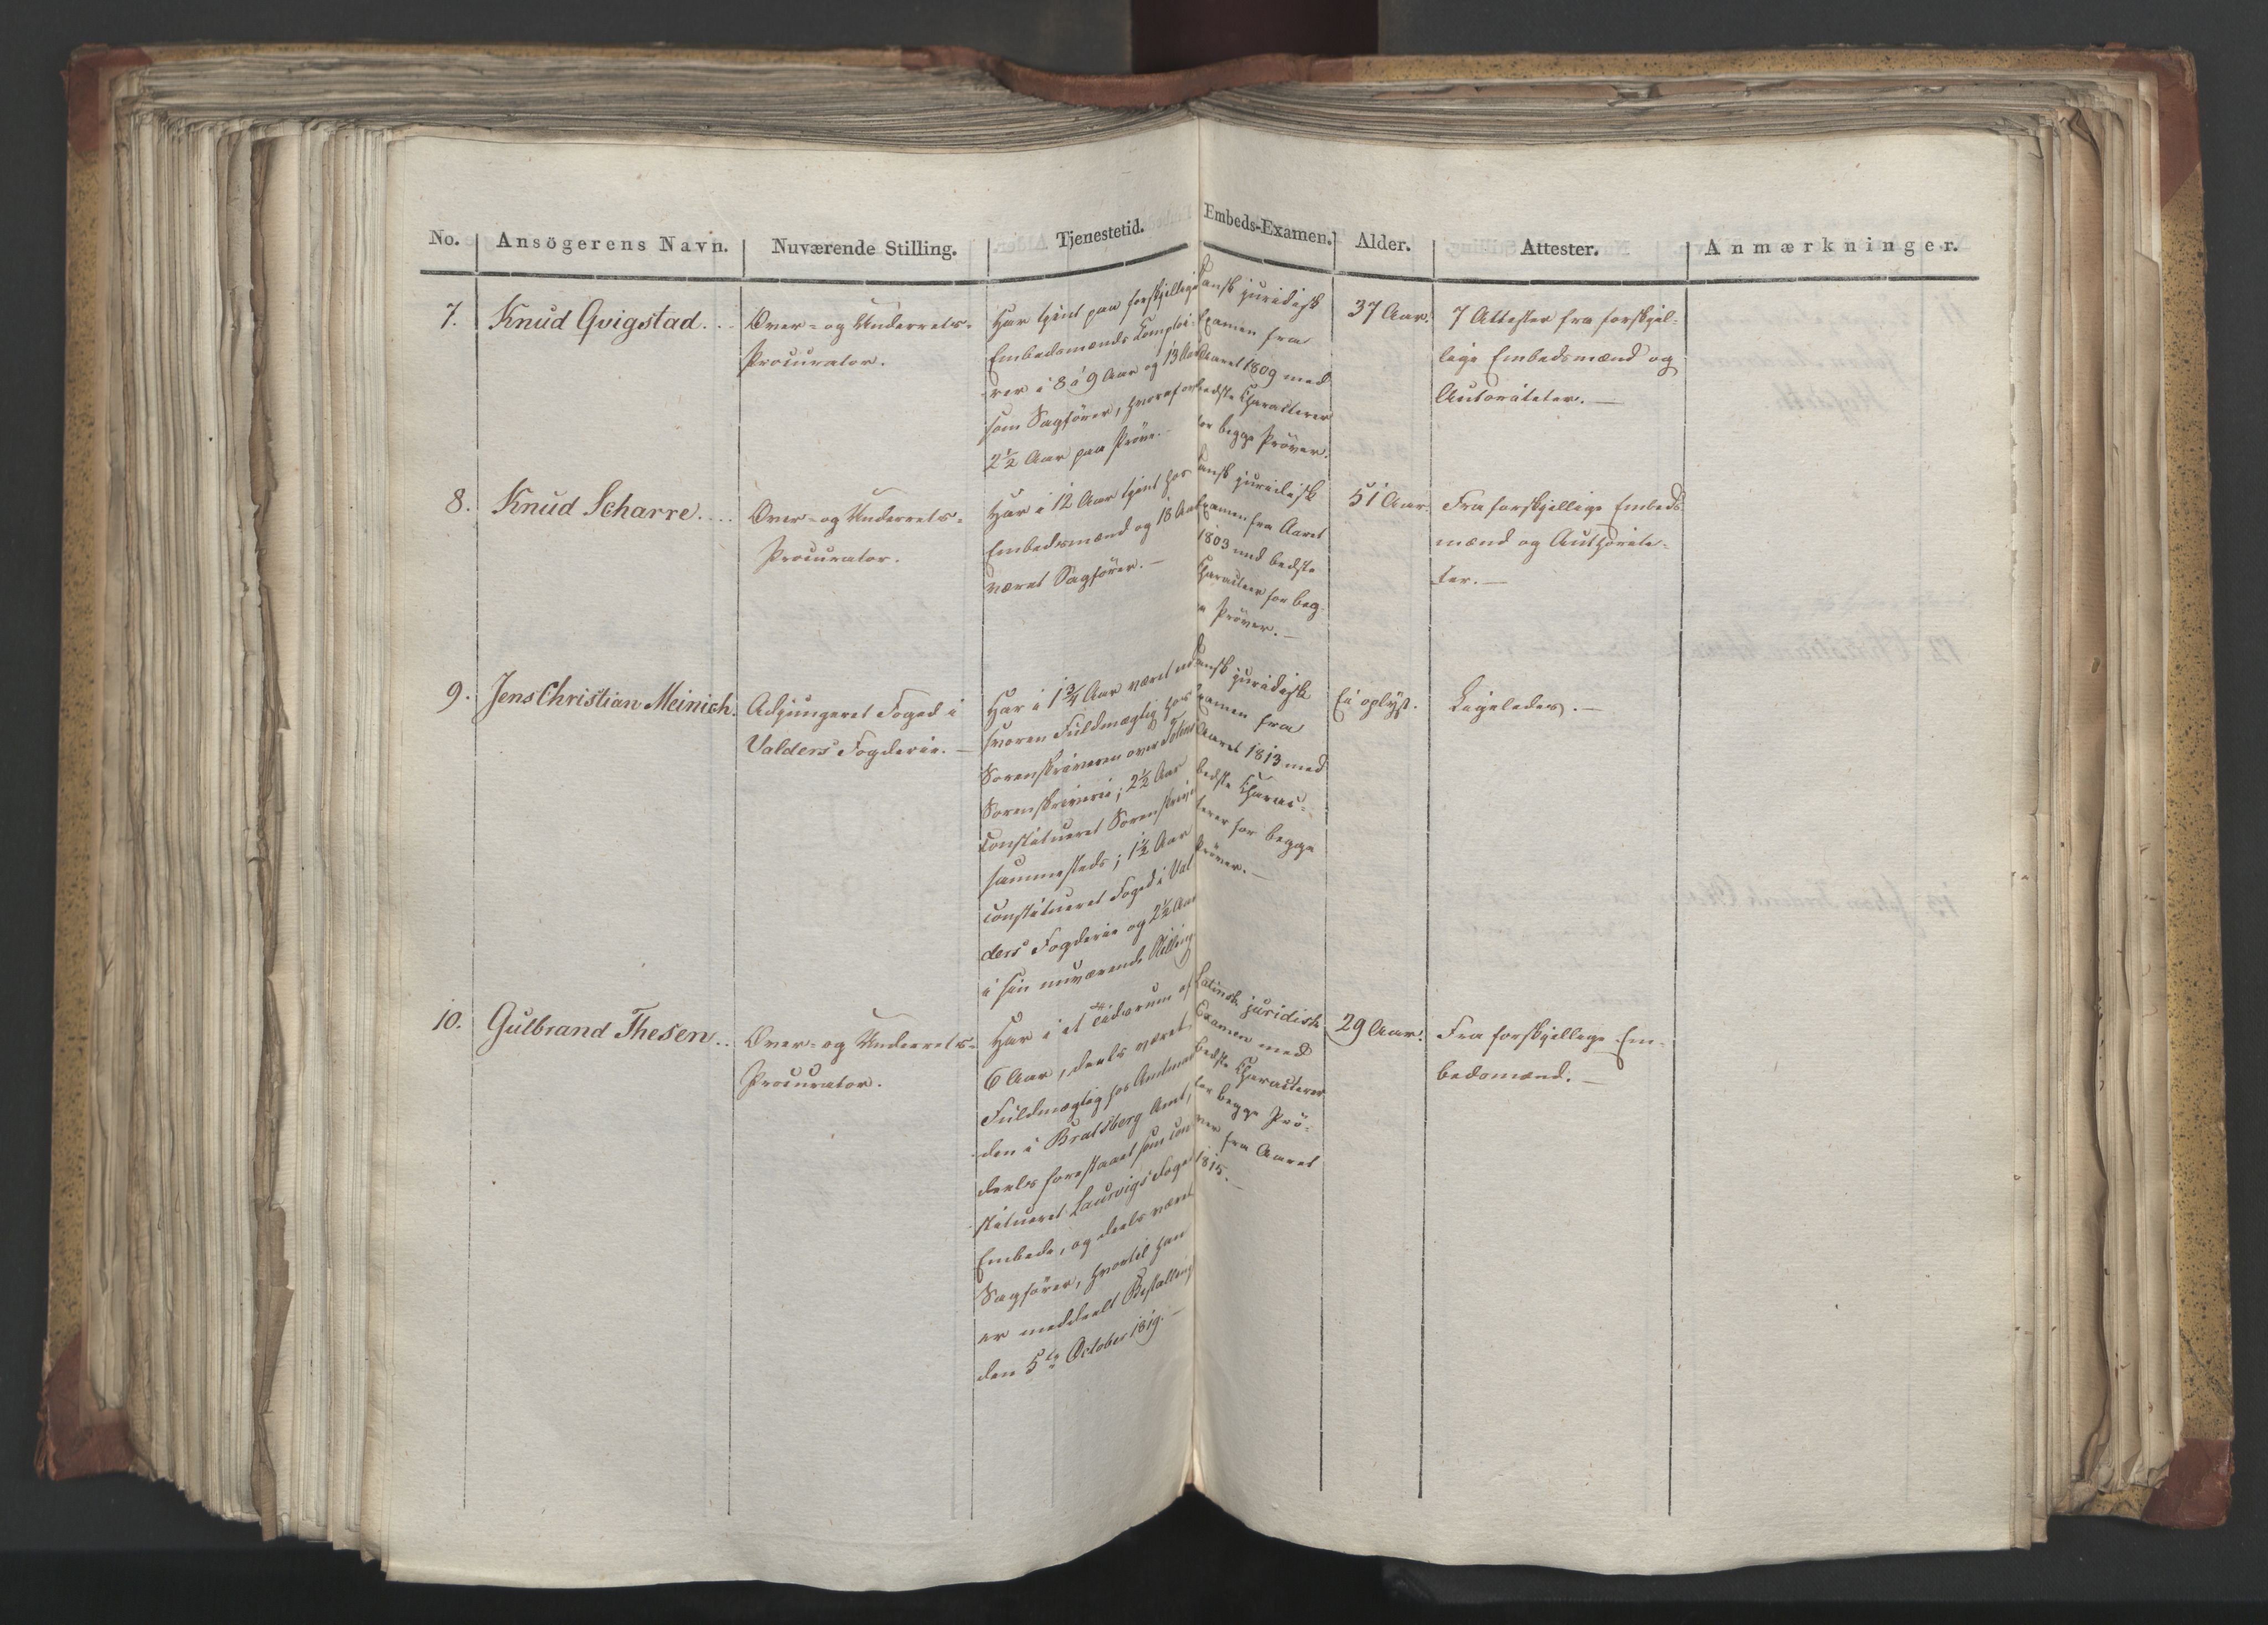 No. Ansögerens Navn. Nuværende Stilling. Tjenestetid. Embeds-Examen. Alder. Attester. Anmærkninger.
7. Knud Qvigstad...
Over- og Underrets-
Procurator.
Har tjent paa forskjellige
Embedsmænds Comptoi-
rer i 8 à 9 Aar og 13 Aar
som Sagförer, hvoraf
2½ Aar paa Pröve.
Dansk juridisk
Examen fra
Aaret 1809 med
bedste Characterer
for begge Pröver.
37 Aar.
7 Attester fra forskjel-
lige Embedsmænd og
Autoriteter. —
8. Knud Scharre....
Over- og Underrets-
Procurator.
Har i 12 Aar tjent hos
Embedsmænd og 18 Aar
været Sagförer. —
Dansk juridisk
Examen fra Aaret
1803 med bedste
Characteer for beg-
ge Pröver. —
51 Aar.
Fra forskjellige Embeds-
mænd og Authorite-
ter. —
9. Jens Christian Meinich.
Adjungeret Foged i
Valders Fogderie. —
Har i 1¾ Aar været ed-
svoren Fuldmægtig hos
Sorenskriveren over Totens
Sorenskriverie; 2½ Aar
Constitueret Sorenskriver
sammesteds; 1½ Aar
constitueret Foged i Val-
ders Fogderie og 2½ Aar
i sin nuværende Stilling
Dansk juridisk
Examen fra
Aaret 1813 med
bedste Charac-
terer for begge
Pröver. —
Ei oplyst.
Ligeledes. —
10. Gulbrand Thesen..
Over- og Underrets-
Procurator.
Har i et Tidsrum af
6 Aar, deels været
Fuldmægtig hos Amtman-
den i Bratsberg Amt,
deels forestaaet som con-
stitueret Laurvigs Foged
Embede, og deels været
Sagförer, hvortil han
er meddeelt Bestalling
den 5te October 1819. —
Latinsk juridisk
Examen med
bedste Characterer
for begge Prö-
ver fra Aaret
1815. —
29 Aar.
Fra forskjellige Em-
bedsmænd. —